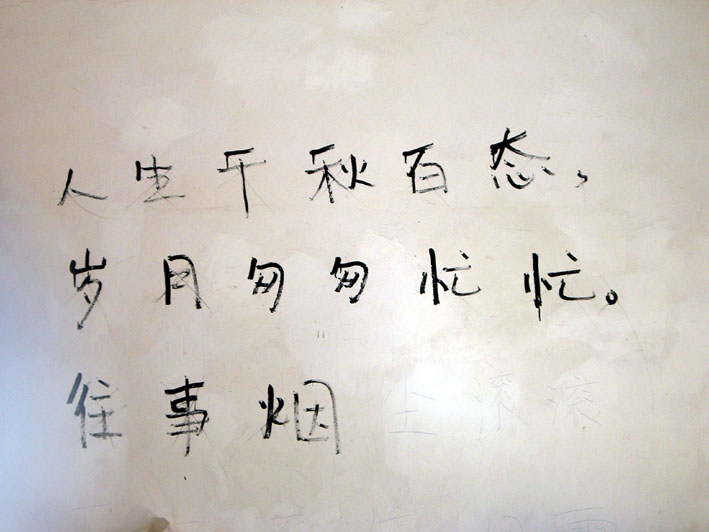 人生千秋百态，
岁月匆匆忙忙。
往事烟尘滚滚